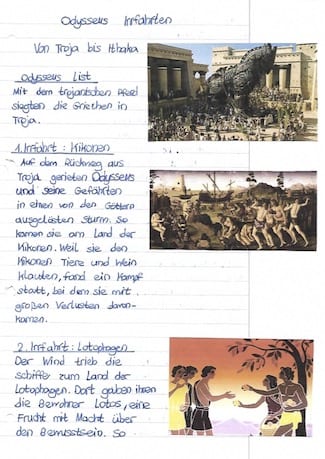 Odysseus Irrfahrten
Von Troja bis Ithaka
Odysseus List
Mit dem trojanischen Pferd
siegten die Griethen in
Troja.
1. Irrfahrt: Kikonen
Auf dem Rückweg aus
Troja gerieten Odysseus
und seine Gefährten
in einen von den Göttern
ausgelösten Sturm. So
kamen sie am Land der
Kikonen. Weil sie den
Kikonen Tiere und Wein
klauten, fand ein Kampf
statt, bei dem sie mit
großen Verlusten davon-
kamen.
2. Irrfahrt: Lotophagen
Der Wind trieb die
Schiffe zum Land der
Lotophagen. Dort gaben ihnen
die Bewohner Lotos, eine
Frucht mit Macht über
den Bewusstsein. So